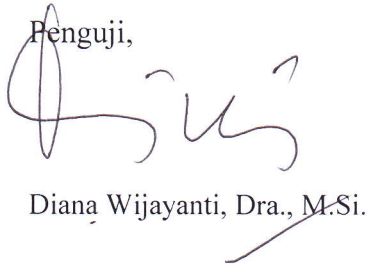 Penguji,
Diana Wijayanti, Dra., M.Si.